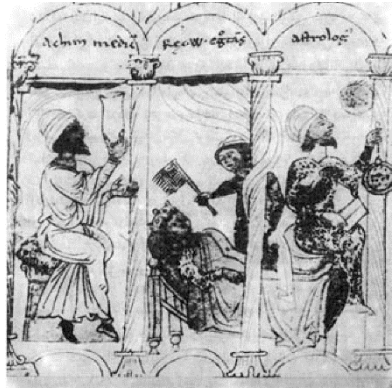 achim medic᷒ Rex W. eg̃tãs astrolog᷒